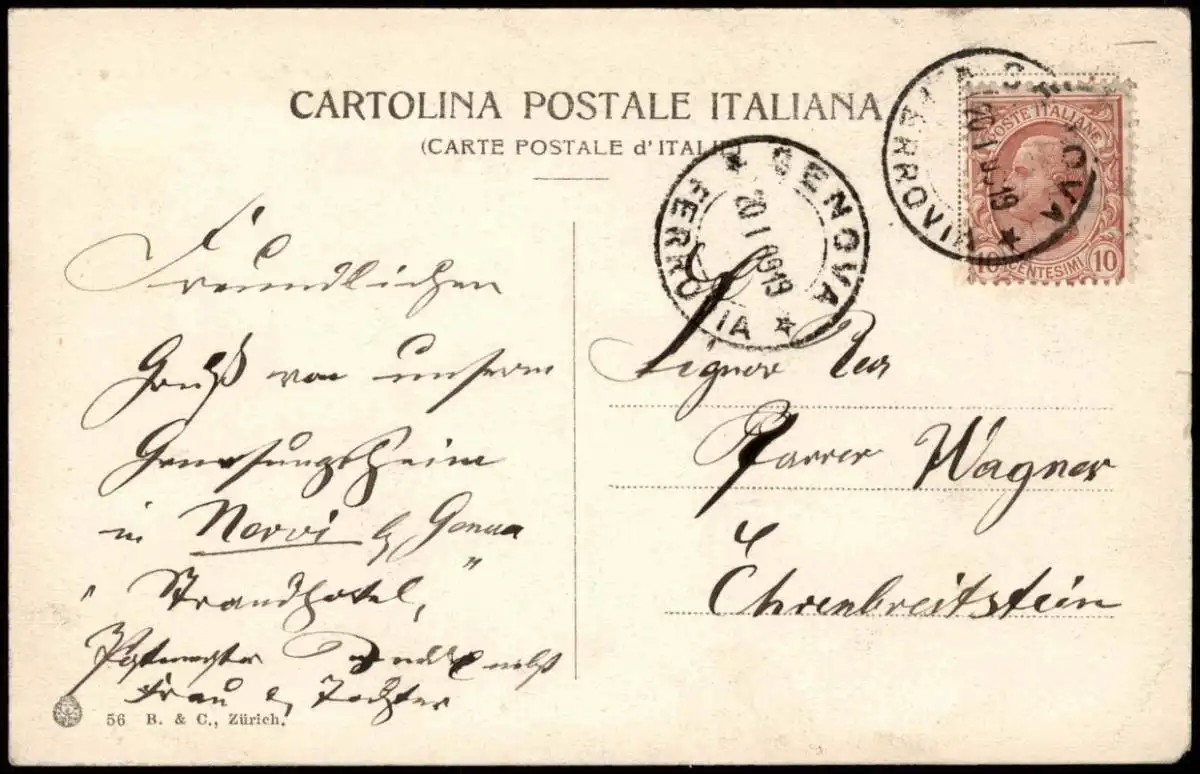 CARTOLINA POSTALE ITALIANA
(CARTE POSTALE d'ITALIE)
GENOVA
FERROVIA
20 1 09 19
GENOVA
FERROVIA
19
POSTE ITALIANE
10 CENTESIMI 10
Freundlichen
Gruß von unserm
Genesungsheim
in Nervi b/ Genua
"Strandhotel"
Postmeister nebst
Frau & Tochter
Signor
Pfarrer Wagner
Ehrenbreitstein
56 B. & C., Zürich.